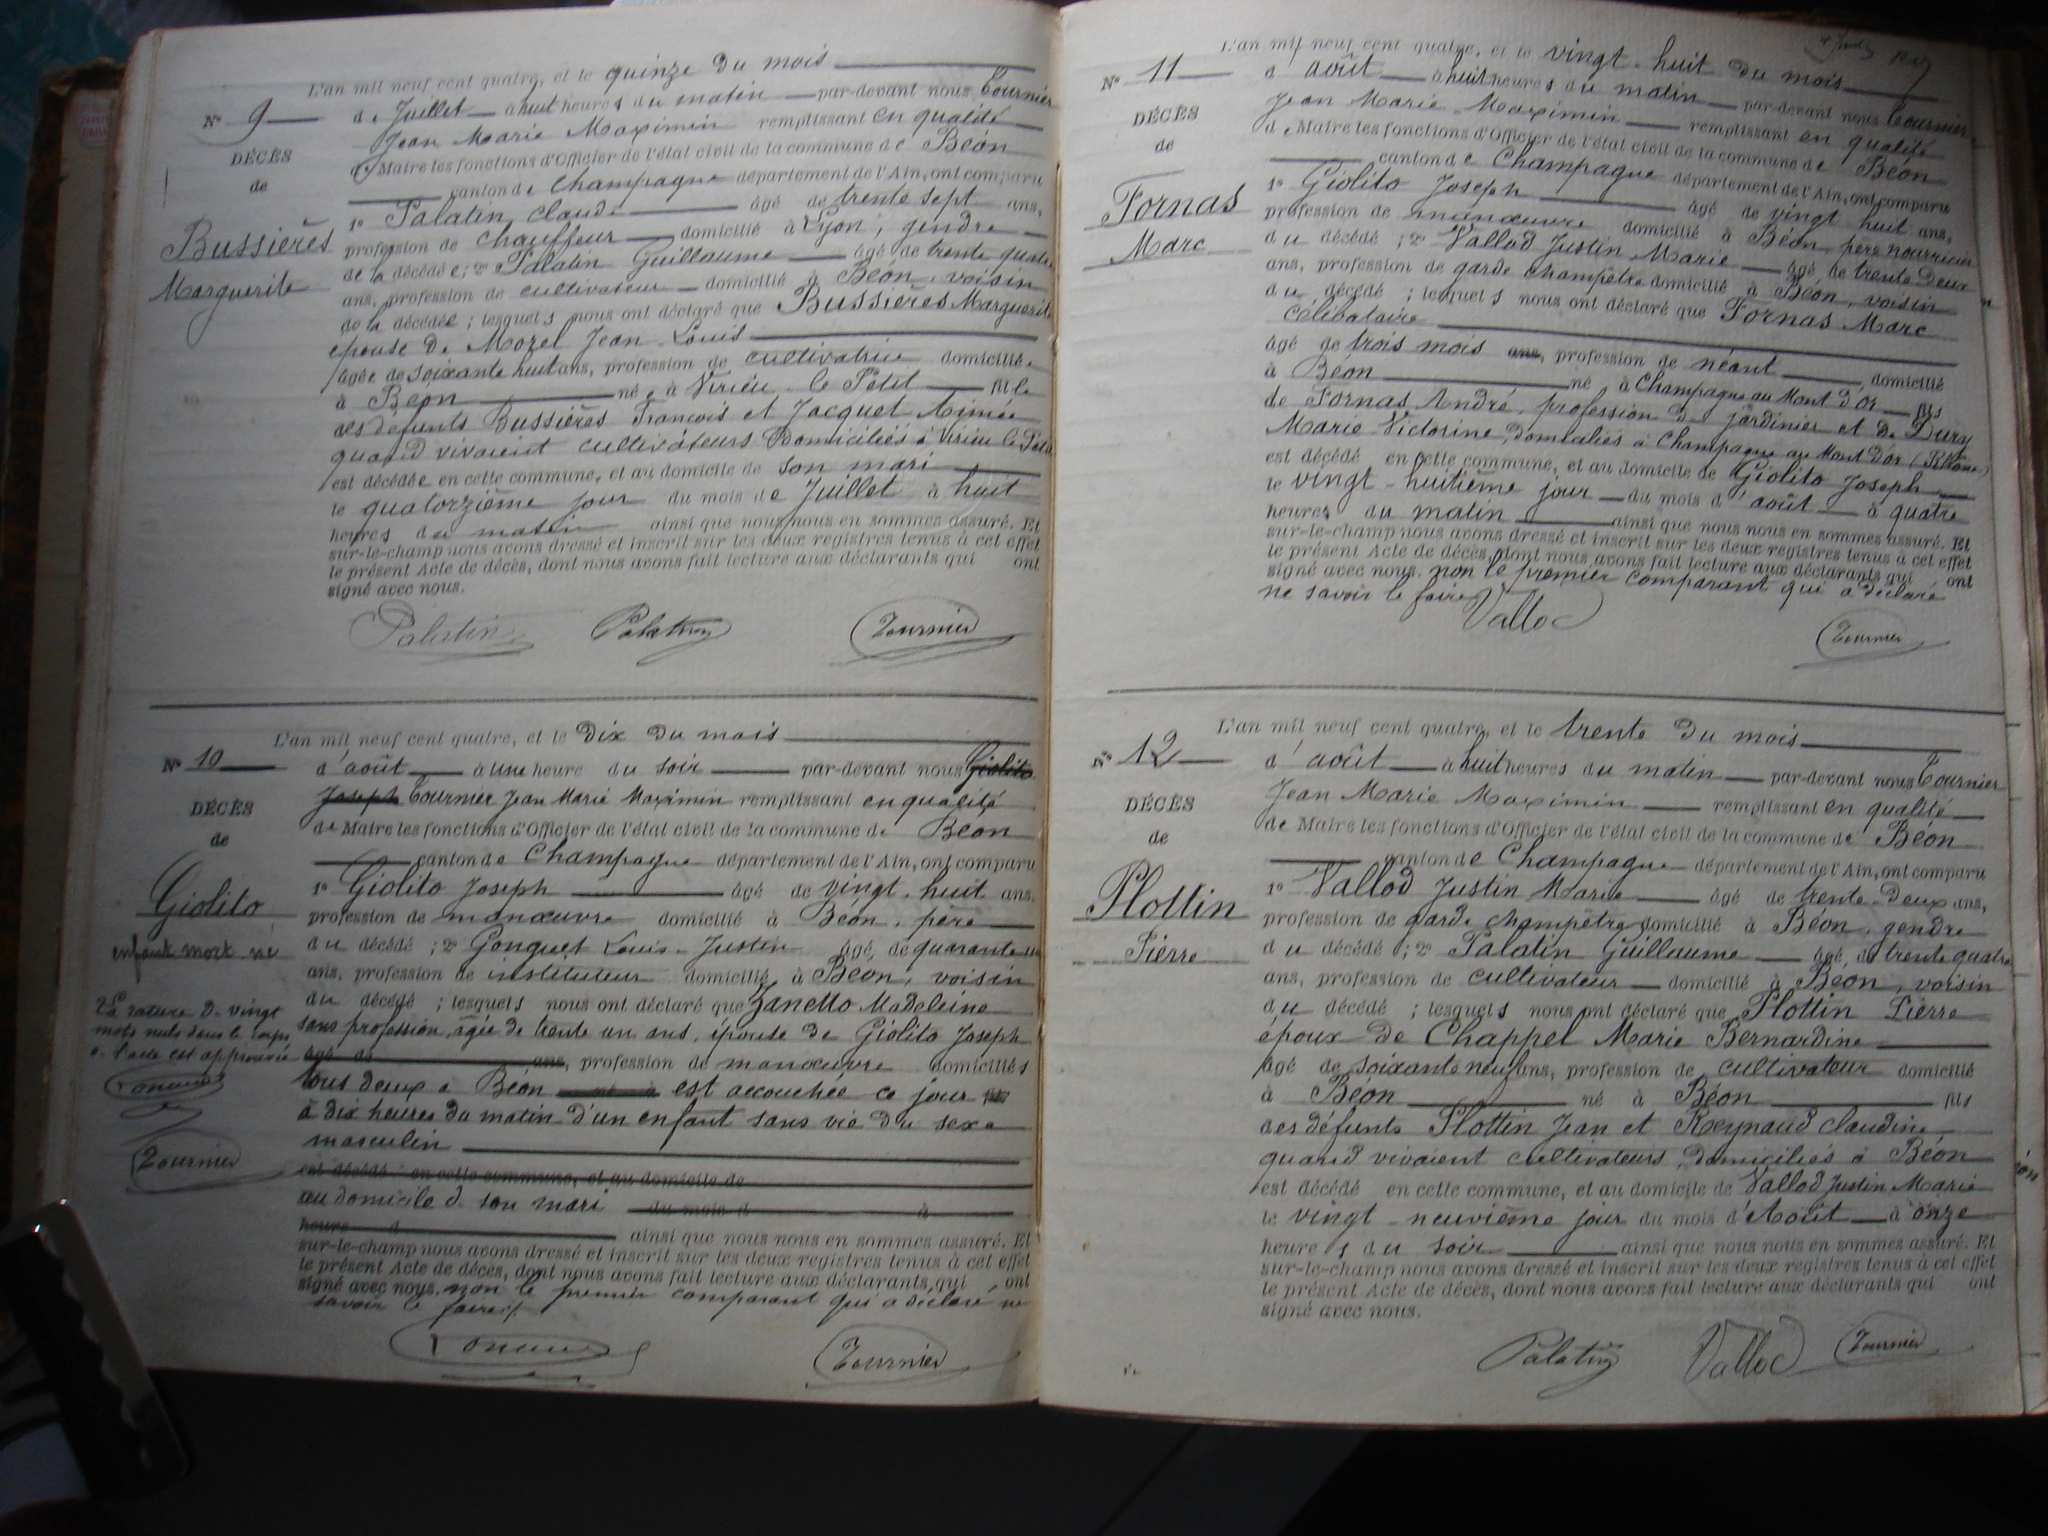 L'an mil neuf cent quatre, et le quinze du mois
N° 9
de Juillet à huit heures du matin par-devant nous Tournier
Jean Marie Maximin remplissant en qualité
DÉCÈS
de Maire les fonctions d'Officier de l'état civil de la commune de Béon
de
canton de Champagne département de l'Ain, ont comparu
1° Palatin Claude âgé de trente sept ans,
Bussières
profession de chauffeur domicilié à Lyon, gendre
de la décédée; 2° Palatin Guillaume âgé de trente quatre
Marguerite
ans, profession de cultivateur domicilié à Béon, voisin
de la décédée; lesquels nous ont déclaré que Bussières Marguerite
épouse de Morel Jean Louis
âgée de soixante huit ans, profession de cultivatrice domiciliée
à Béon née à Virieu le Petit fille
des défunts Bussières François et Jacquet Aimée
quand vivaient cultivateurs Domiciliés à Virieu le Petit
est décédée en cette commune, et au domicile de son mari
le quatorzième jour du mois de Juillet à huit
heures du matin ainsi que nous nous en sommes assuré. Et
sur-le-champ nous avons dressé et inscrit sur les deux registres tenus à cet effet
le présent Acte de décès, dont nous avons fait lecture aux déclarants qui ont
signé avec nous.
Palatin Palatin Tournier
L'an mil neuf cent quatre, et le dix du mois
N° 10
d'août à une heure du soir par-devant nous Giolito
Joseph Tournier Jean Marie Maximin remplissant en qualité
DÉCÈS
de Maire les fonctions d'Officier de l'état civil de la commune de Béon
de
canton de Champagne département de l'Ain, ont comparu
Giolito
1° Giolito Joseph âgé de vingt-huit ans,
profession de manœuvre domicilié à Béon, père
enfant mort né
du décédé; 2° Gonguet Louis-Justin âgé de quarante un
ans, profession de instituteur domicilié à Béon, voisin
du décédé; lesquels nous ont déclaré que Zanetto Madeleine
La rature de vingt
mots nuls dans le corps
de l'acte est approuvée
sans profession, agée de trente un ans, épouse de Giolito Joseph
âgé de ans, profession de manœuvre domiciliés
tous deux à Béon né à est accouchée ce jour fils
à dix heures du matin d'un enfant sans vie du sexe
masculin
Tournier
est décédé en cette commune, et au domicile de
au domicile de son mari du mois d à
heure d ainsi que nous nous en sommes assuré. Et
sur-le-champ nous avons dressé et inscrit sur les deux registres tenus à cet effet
le présent Acte de décès, dont nous avons fait lecture aux déclarants qui ont
signé avec nous, non le premier comparant qui a déclaré ne
savoir le faire
Tournier
L'an mil neuf cent quatre, et le vingt-huit du mois
N° 11
d'août à huit heures du matin par-devant nous Tournier
Jean Marie Maximin remplissant en qualité
DÉCÈS
de Maire les fonctions d'Officier de l'état civil de la commune de Béon
de
canton de Champagne département de l'Ain, ont comparu
Fornas
1° Giolito Joseph âgé de vingt huit ans,
profession de manœuvre domicilié à Béon, père nourricier
Marc
du décédé; 2° Vallod Justin Marie âgé de trente deux
ans, profession de garde champêtre domicilié à Béon, voisin
du décédé; lesquels nous ont déclaré que Fornas Marc
célibataire
âgé de trois mois ans, profession de néant domicilié
à Béon né à Champagne au Mont d'Or fils
de Fornas André, profession de jardinier et de Dury
Marie Victorine, domiciliés à Champagne au Mont d'Or (Rhône)
est décédé en cette commune, et au domicile de Giolito Joseph
le vingt-huitième jour du mois d'août à quatre
heures du matin ainsi que nous nous en sommes assuré. Et
sur-le-champ nous avons dressé et inscrit sur les deux registres tenus à cet effet
le présent Acte de décès, dont nous avons fait lecture aux déclarants qui ont
signé avec nous, non le premier comparant qui a déclaré
ne savoir le faire
Vallod
Tournier
L'an mil neuf cent quatre, et le trente du mois
N° 12
d'août à huit heures du matin par-devant nous Tournier
Jean Marie Maximin remplissant en qualité
DÉCÈS
de Maire les fonctions d'Officier de l'état civil de la commune de Béon
de
canton de Champagne département de l'Ain, ont comparu
Plottin
1° Vallod Justin Marie âgé de trente-deux ans,
profession de garde champêtre domicilié à Béon, gendre
Pierre
du décédé; 2° Palatin Guillaume âgé de trente quatre
ans, profession de cultivateur domicilié à Béon, voisin
du décédé; lesquels nous ont déclaré que Plottin Pierre
époux de Chappel Marie Bernardine
âgé de soixante neuf ans, profession de cultivateur domicilié
à Béon né à Béon fils
des défunts Plottin Jean et Reynaud Claudine
quand vivaient cultivateurs, domiciliés à Béon
est décédé en cette commune, et au domicile de Vallod Justin Marie
le vingt-neuvième jour du mois d'Août à onze
heures du soir ainsi que nous nous en sommes assuré. Et
sur-le-champ nous avons dressé et inscrit sur les deux registres tenus à cet effet
le présent Acte de décès, dont nous avons fait lecture aux déclarants qui ont
signé avec nous.
Palatin Vallod Tournier